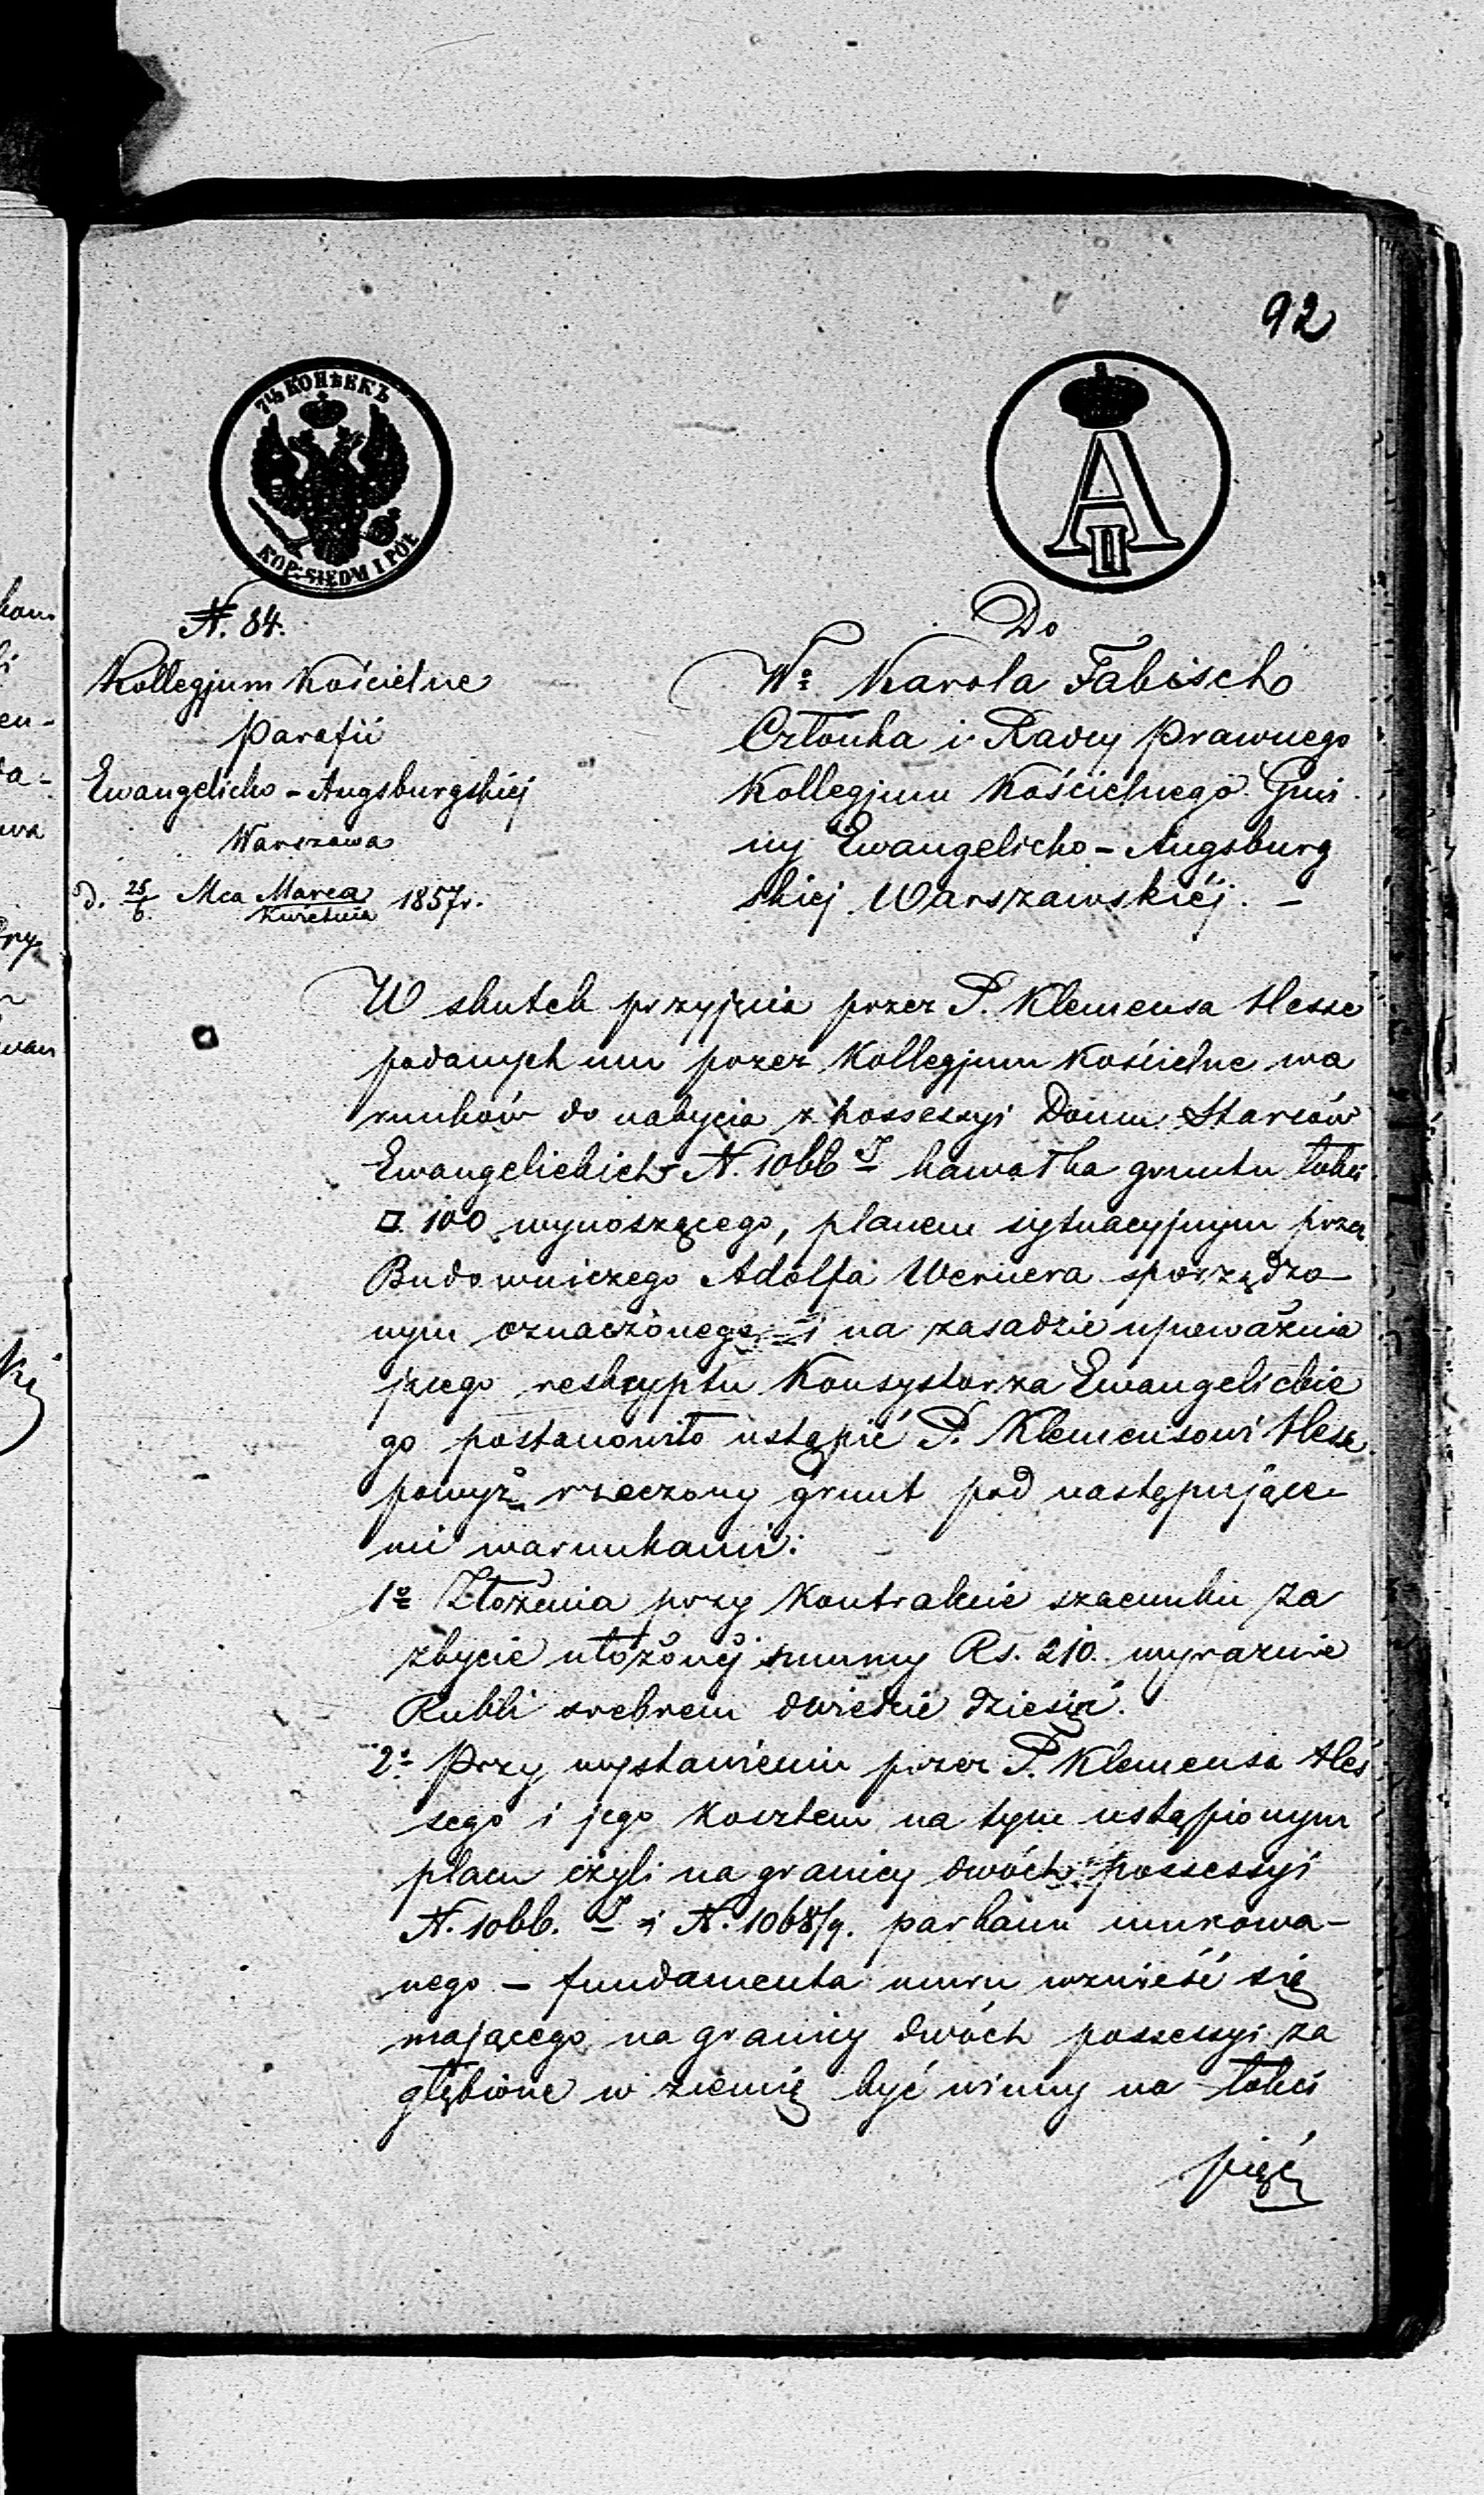 92
7½ КОПѢЕКЪ
KOP. SIEDM I PÓŁ
A II
N. 84.
Kollegjum Kościelne
Parafii
Ewangelicko-Augsburgskiej
Warszawa
d. 25/6 Mca Marca/Kwietnia 1857 r.
Do
Wº Karola Fabisch
Członka i Radcy Prawnego
Kollegjum Kościelnego Gmi
ny Ewangelicko-Augsburg
skiej Warszawskiéj. –
W skutek przyjęcia przez P. Klemensa Hesse
podanych mu przez Kollegjum Kościelne wa
runków do nabycia z possessyi Domu Starców
Ewangelickich N. 1066 kawałka gruntu łokci
□ 100 wynoszącego, planem sytuacyjnym przez
Budowniczego Adolfa Wernera sporządzo-
nym oznaczonego i na zasadzie upoważnia
jącego reskryptu Konsystorza Ewangelickie
go postanowiło ustąpić P. Klemensowi Hesse
powyż rzeczony grunt pod następujące-
mi warunkami:
1º Złożenia przy Kontrakcie szacunku za
zbycie ułożonéj summy Rs. 210. wyraznie
Rubli srebrem dwieście dziesięć.
2º Przy wystawieniu przez P. Klemensa Hes
sego i jego kosztem na tym ustąpionym
placu czyli na granicy dwóch possessyi
N. 1066. i N. 1068/9. parkanu murowa-
nego – fundamenta muru wznieść się
mającego na granicy dwóch possessyi za
głębione w ziemię być winny na łokci
pięć